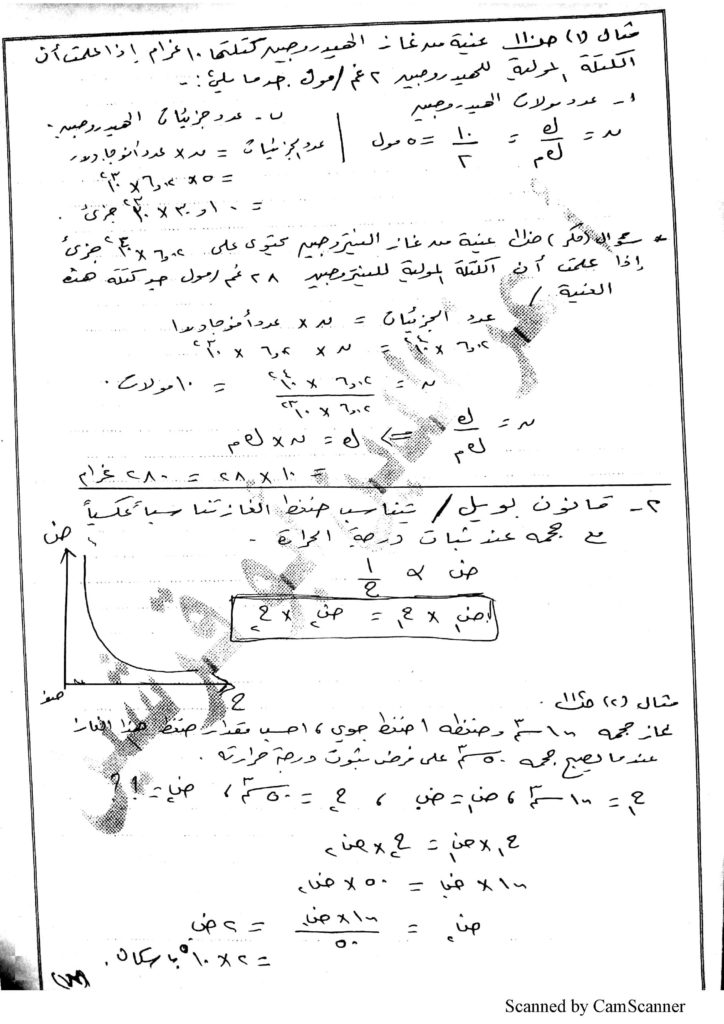 مثال (١) ص١١٠ عينة من غاز الهيدروجين كتلتها ١٠ غرام إذا علمت أن
الكتلة المولية للهيدروجين ٢ غم/مول جد ما يلي :-
أ- عدد مولات الهيدروجين
ن = ك / ك م = ١٠ / ٢ = ٥ مول
ب- عدد جزيئات الهيدروجين.
عدد الجزيئات = ن × عدد أفوجادرو
= ٥ × ٦,٠٢ × ١٠^٢٣
= ٣٠,١٠ × ١٠^٢٣ جزئ .
* سؤال (فكر) عينة من غاز النيتروجين تحتوي على ٦,٠٢ × ١٠^٢٤ جزئ
إذا علمت أن الكتلة المولية للنيتروجين ٢٨ غم/مول جد كتلة هذه
العينة /
عدد الجزيئات = ن × عدد أفوجادرو
٦,٠٢ × ١٠^٢٤ = ن × ٦,٠٢ × ١٠^٢٣
ن = ٦,٠٢ × ١٠^٢٤ / ٦,٠٢ × ١٠^٢٣ = ١٠ مولات .
ن = ك / ك م => ك = ن × ك م
= ١٠ × ٢٨ = ٢٨٠ غرام
٢- قانون بويل / يتناسب ضغط الغاز تناسباً عكسياً
مع حجمه عند ثبات درجة الحرارة .
ض
ض ∝ ١ / ح
ض١ × ح١ = ض٢ × ح٢
صفر
ح
مثال (٢)
غاز حجمه ١٠٠ سم٣ وضغطه ١ ضغط جوي ، احسب مقدار ضغط هذا الغاز
عندما يصبح حجمه ٥٠ سم٣ على فرض ثبوت درجة حرارته .
ح١ = ١٠٠ سم٣ ، ض١ = ض١ ، ح٢ = ٥٠ سم٣ ، ض٢ = ؟!
ح١ × ض١ = ح٢ × ض٢
١٠٠ × ض١ = ٥٠ × ض٢
ض٢ = ١٠٠ × ض١ / ٥٠ = ٢ ض
= ٢ × ١٠^٥ باسكال .
Scanned by CamScanner